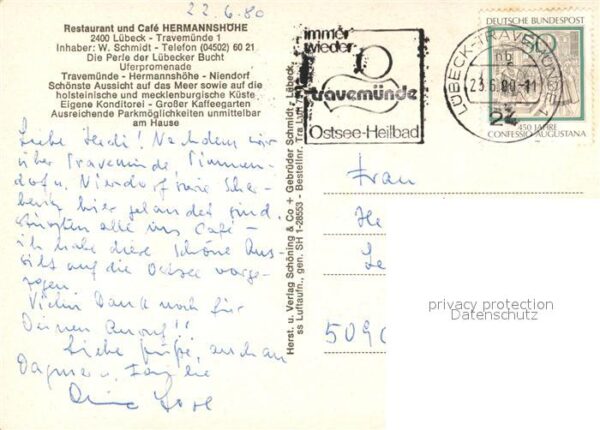 22.6.80
Restaurant und Café HERMANNSHÖHE
2400 Lübeck - Travemünde 1
Inhaber: W. Schmidt - Telefon (04502) 60 21
Die Perle der Lübecker Bucht
Uferpromenade
Travemünde - Hermannshöhe - Niendorf
Schönste Aussicht auf das Meer sowie auf die
holsteinische und mecklenburgische Küste
Eigene Konditorei - Großer Kaffeegarten
Ausreichende Parkmöglichkeiten unmittelbar
am Hause
Liebe Herdi! Nachdem wir
über Travemünde, Timmen-
dorf u. Niendorf sowie Schar-
beutz hier gelandet sind
stürzten alle ins Café -
ich habe diese schöne Aus-
sicht auf die Ostsee vorge-
zogen.
Vielen Dank noch für
Deinen Anruf!!
Liebe Grüße, auch an
Dagmar u. Familie
Herst. u. Verlag Schöning & Co + Gebrüder Schmidt - Lübeck
ss Luftaufn., gen. SH 1-28553 - Bestellnr. Tra Luft
immer
wieder
travemünde
Ostsee-Heilbad
LÜBECK-TRAVEMÜNDE 1
23.6.80-11
24
DEUTSCHE BUNDESPOST
450 JAHRE
CONFESSIO AUGUSTANA
Frau
He
Le
5090
privacy protection
Datenschutz